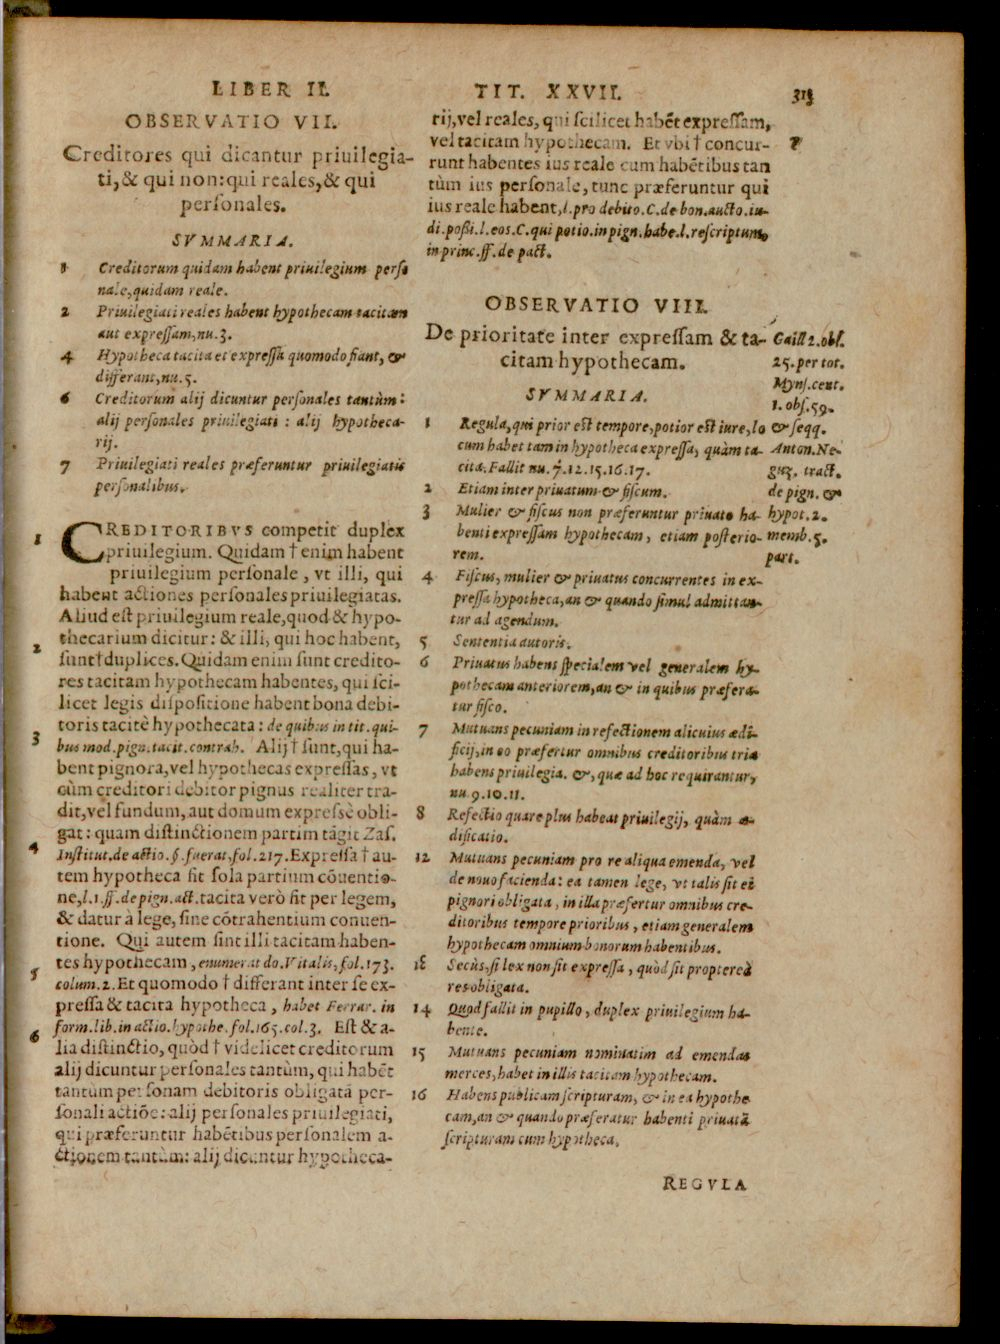 LIBER II.
OBSERVATIO VII.
Creditores qui dicantur priuilegia-
ti, & qui non: qui reales, & qui
personales.
SVMMARIA.
1 Creditorum quidam habent priuilegium perso
nale, quidam reale.
2 Priuilegiati reales habent hypothecam tacitam
aut expressam, nu. 3.
4 Hypotheca tacita et expressa quomodo fiant, &
differant, nu. 5.
6 Creditorum alij dicuntur personales tantùm:
alij personales priuilegiati: alij hypotheca-
rij.
7 Priuilegiati reales præferuntur priuilegiatis
personalibus.
1 CREDITORIBVS competit duplex
priuilegium. Quidam † enim habent
priuilegium personale, vt illi, qui
habent actiones personales priuilegiatas.
Aliud est priuilegium reale, quod & hypo-
thecarium dicitur: & illi, qui hoc habent,
2 sunt † duplices. Quidam enim sunt credito-
res tacitam hypothecam habentes, qui sci-
licet legis dispositione habent bona debi-
toris tacitè hypothecata: de quibus in tit. qui-
3 bus mod. pign. tacit. contrah. Alij † sunt, qui ha-
bent pignora, vel hypothecas expressas, vt
cùm creditori debitor pignus realiter tra-
dit, vel fundum, aut domum expressè obli-
gat: quam distinctionem partim tāgit Zas.
4 Institut. de actio. §. fuerat, fol. 217. Expressa † au-
tem hypotheca fit sola partium cōuentio-
ne, l. 1. ff. de pign. act. tacita verò fit per legem,
& datur à lege, sine cōtrahentium conuen-
tione. Qui autem sint illi tacitam haben-
tes hypothecam, enumerat do. Vitalis, fol. 173.
5 colum. 2. Et quomodo † differant inter se ex-
pressa & tacita hypotheca, habet Ferrar. in
form. lib. in actio. hypothe. fol. 165. col. 3. Est & a-
6 lia distinctio, quòd † videlicet creditorum
alij dicuntur personales tantùm, qui habēt
tantùm personam debitoris obligatā per-
sonali actiōe: alij personales priuilegiati,
qui præferuntur habētibus personalem a-
ctionem tantùm: alij dicuntur hypotheca-
TIT. XXVII. 313
rij, vel reales, qui scilicet habēt expressam,
vel tacitam hypothecam. Et vbi † concur- 7
runt habentes ius reale cum habētibus tan
tùm ius personale, tunc præferuntur qui
ius reale habent, l. pro debito. C. de bon. aucto. iu-
di. possi. l. eos. C. qui potio. in pign. habe. l. rescriptum,
in princ. ff. de pact.
OBSERVATIO VIII.
De prioritate inter expressam & ta-
citam hypothecam.
SVMMARIA.
Gaill 2. obs.
25. per tot.
Myns. cent.
1. obs. 59.
& seqq.
Anton. Ne-
guz. tract.
de pign. &
hypot. 2.
memb. 5.
part.
1 Regula, qui prior est tempore, potior est iure, lo
cum habet tam in hypotheca expressa, quàm ta-
cita. Fallit nu. 7. 12. 15. 16. 17.
2 Etiam inter priuatum & fiscum.
3 Mulier & fiscus non præferuntur priuato ha-
benti expressam hypothecam, etiam posterio-
rem.
4 Fiscus, mulier & priuatus concurrentes in ex-
pressa hypotheca, an & quando simul admittan-
tur ad agendum.
5 Sententia autoris.
6 Priuatus habens specialem vel generalem hy-
pothecam anteriorem, an & in quibus præfera-
tur fisco.
7 Mutuans pecuniam in refectionem alicuius ædi-
ficij, in eo præfertur omnibus creditoribus tria
habens priuilegia. &, quæ ad hoc requirantur,
nu. 9. 10. 11.
8 Refectio quare plus habeat priuilegij, quàm æ-
dificatio.
12 Mutuans pecuniam pro re aliqua emenda, vel
de nouo facienda: ea tamen lege, vt talis sit ei
pignori obligata, in illa præfertur omnibus cre-
ditoribus tempore prioribus, etiam generalem
hypothecam omnium bonorum habentibus.
13 Secùs, si lex non sit expressa, quòd sit propterea
res obligata.
14 Quod fallit in pupillo, duplex priuilegium ha-
bente.
15 Mutuans pecuniam nominatim ad emendas
merces, habet in illis tacitam hypothecam.
16 Habens publicam scripturam, & in ea hypothe
cam, an & quando præferatur habenti priuatā
scripturam cum hypotheca.
REGVLA